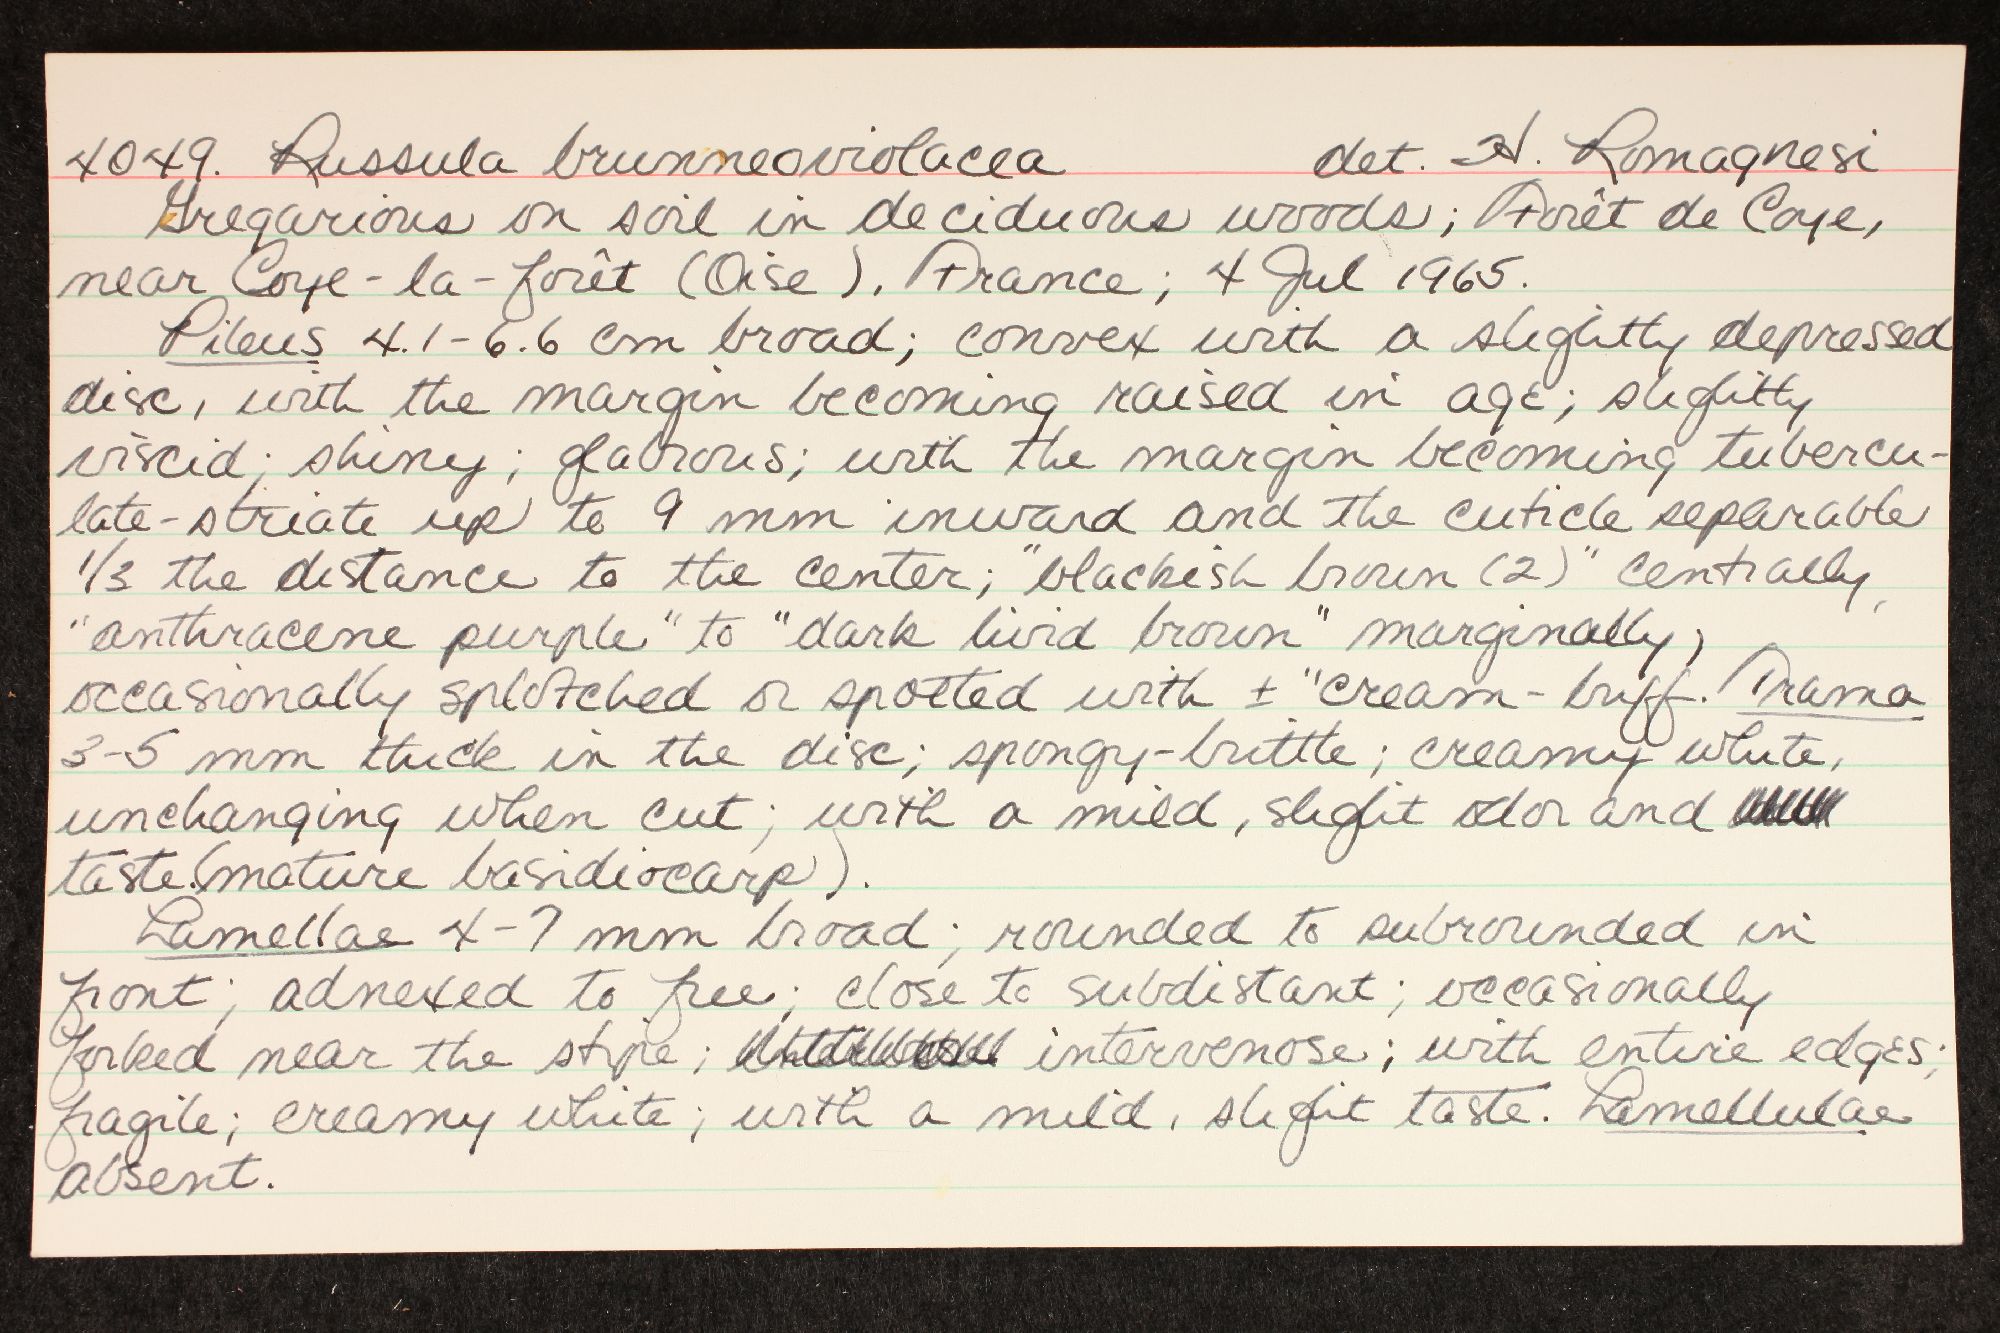 4049. Russula brunneoviolacea det. H. Romagnesi
Gregarious on soil in deciduous woods; Forêt de Coye,
near Coye-la-forêt (Oise), France; 4 Jul 1965.
Pileus 4.1-6.6 cm broad; convex with a slightly depressed
disc, with the margin becoming raised in age; slightly
viscid; shiny; glabrous; with the margin becoming tubercu-
late-striate up to 9 mm inward and the cuticle separable
1/3 the distance to the center; "blackish brown (2)" centrally,
"anthracene purple" to "dark livid brown" marginally,
occasionally splotched or spotted with ± "cream-buff. Trama
3-5 mm thick in the disc; spongy-brittle; creamy white,
unchanging when cut; with a mild, slight odor and
taste (mature basidiocarp).
Lamellae 4-7 mm broad; rounded to subrounded in
front; adnexed to free; close to subdistant; occasionally
forked near the stipe; intervenose; with entire edges;
fragile; creamy white; with a mild, slight taste. Lamellulae
absent.